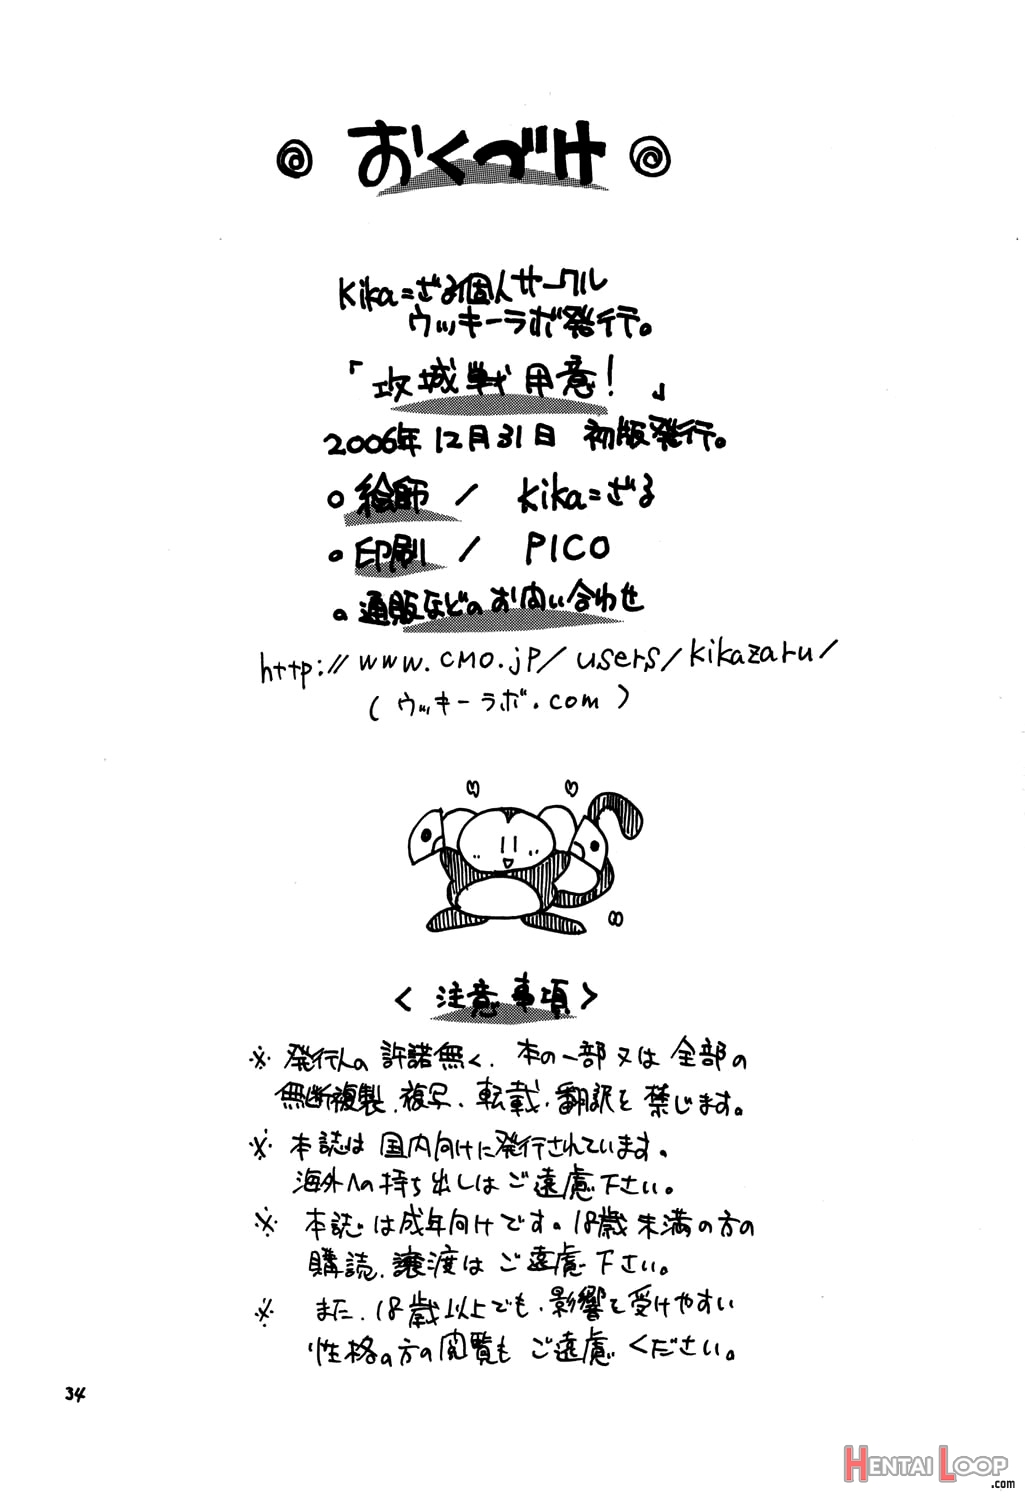 おくづけ
Kika=ざる個人サークル
ウッキーラボ発行。
「攻城戦用意！」
2006年12月31日 初版発行。
○絵師 / Kika=ざる
○印刷 / PICO
○通販などのお問い合わせ
http://www.cmo.jp/users/kikazaru/
(ウッキーラボ.com)
<注意事項>
※発行人の許諾無く、本の一部又は全部の
無断複製、複写、転載、翻訳を禁じます。
※本誌は国内向けに発行されています。
海外への持ち出しはご遠慮下さい。
※本誌は成年向けです。18歳未満の方の
購読、譲渡はご遠慮下さい。
※また、18歳以上でも、影響を受けやすい
性格の方の閲覧もご遠慮ください。
34
HENTAI LOOP
.com